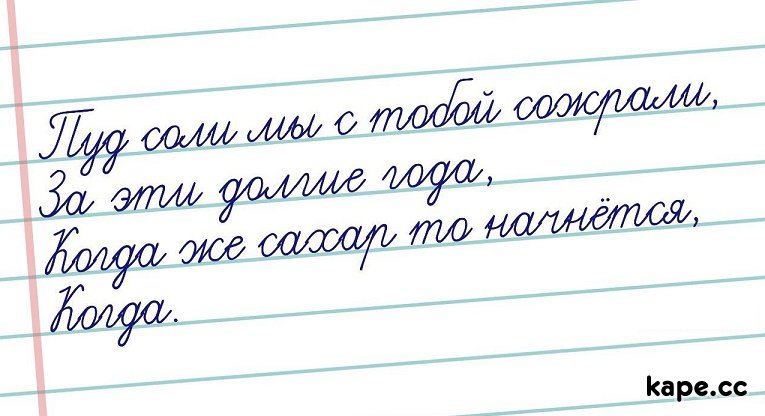 Пуд соли мы с тобой сожрали,
За эти долгие года,
Когда же сахар то начнётся,
Когда.
kape.cc